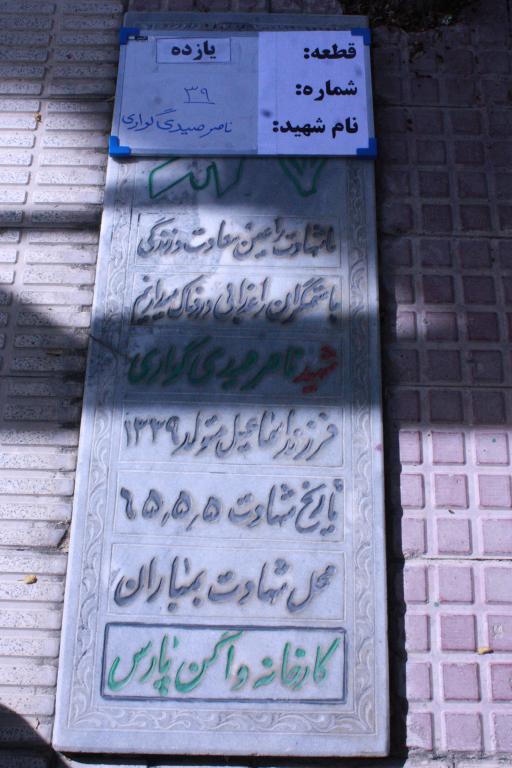 قطعه: یازده
شماره: ۳۹
نام شهید: ناصر صیدی گواری
ما شهادت را عین سعادت و زندگی
با ستمگران را غذابی دردناک میدانیم
شهید ناصر صیدی گواری
فرزند اسماعیل متولد ۱۳۳۹
تاریخ شهادت ۶۵٫۵٫۵
محل شهادت بمباران
کارخانه واگن پارس